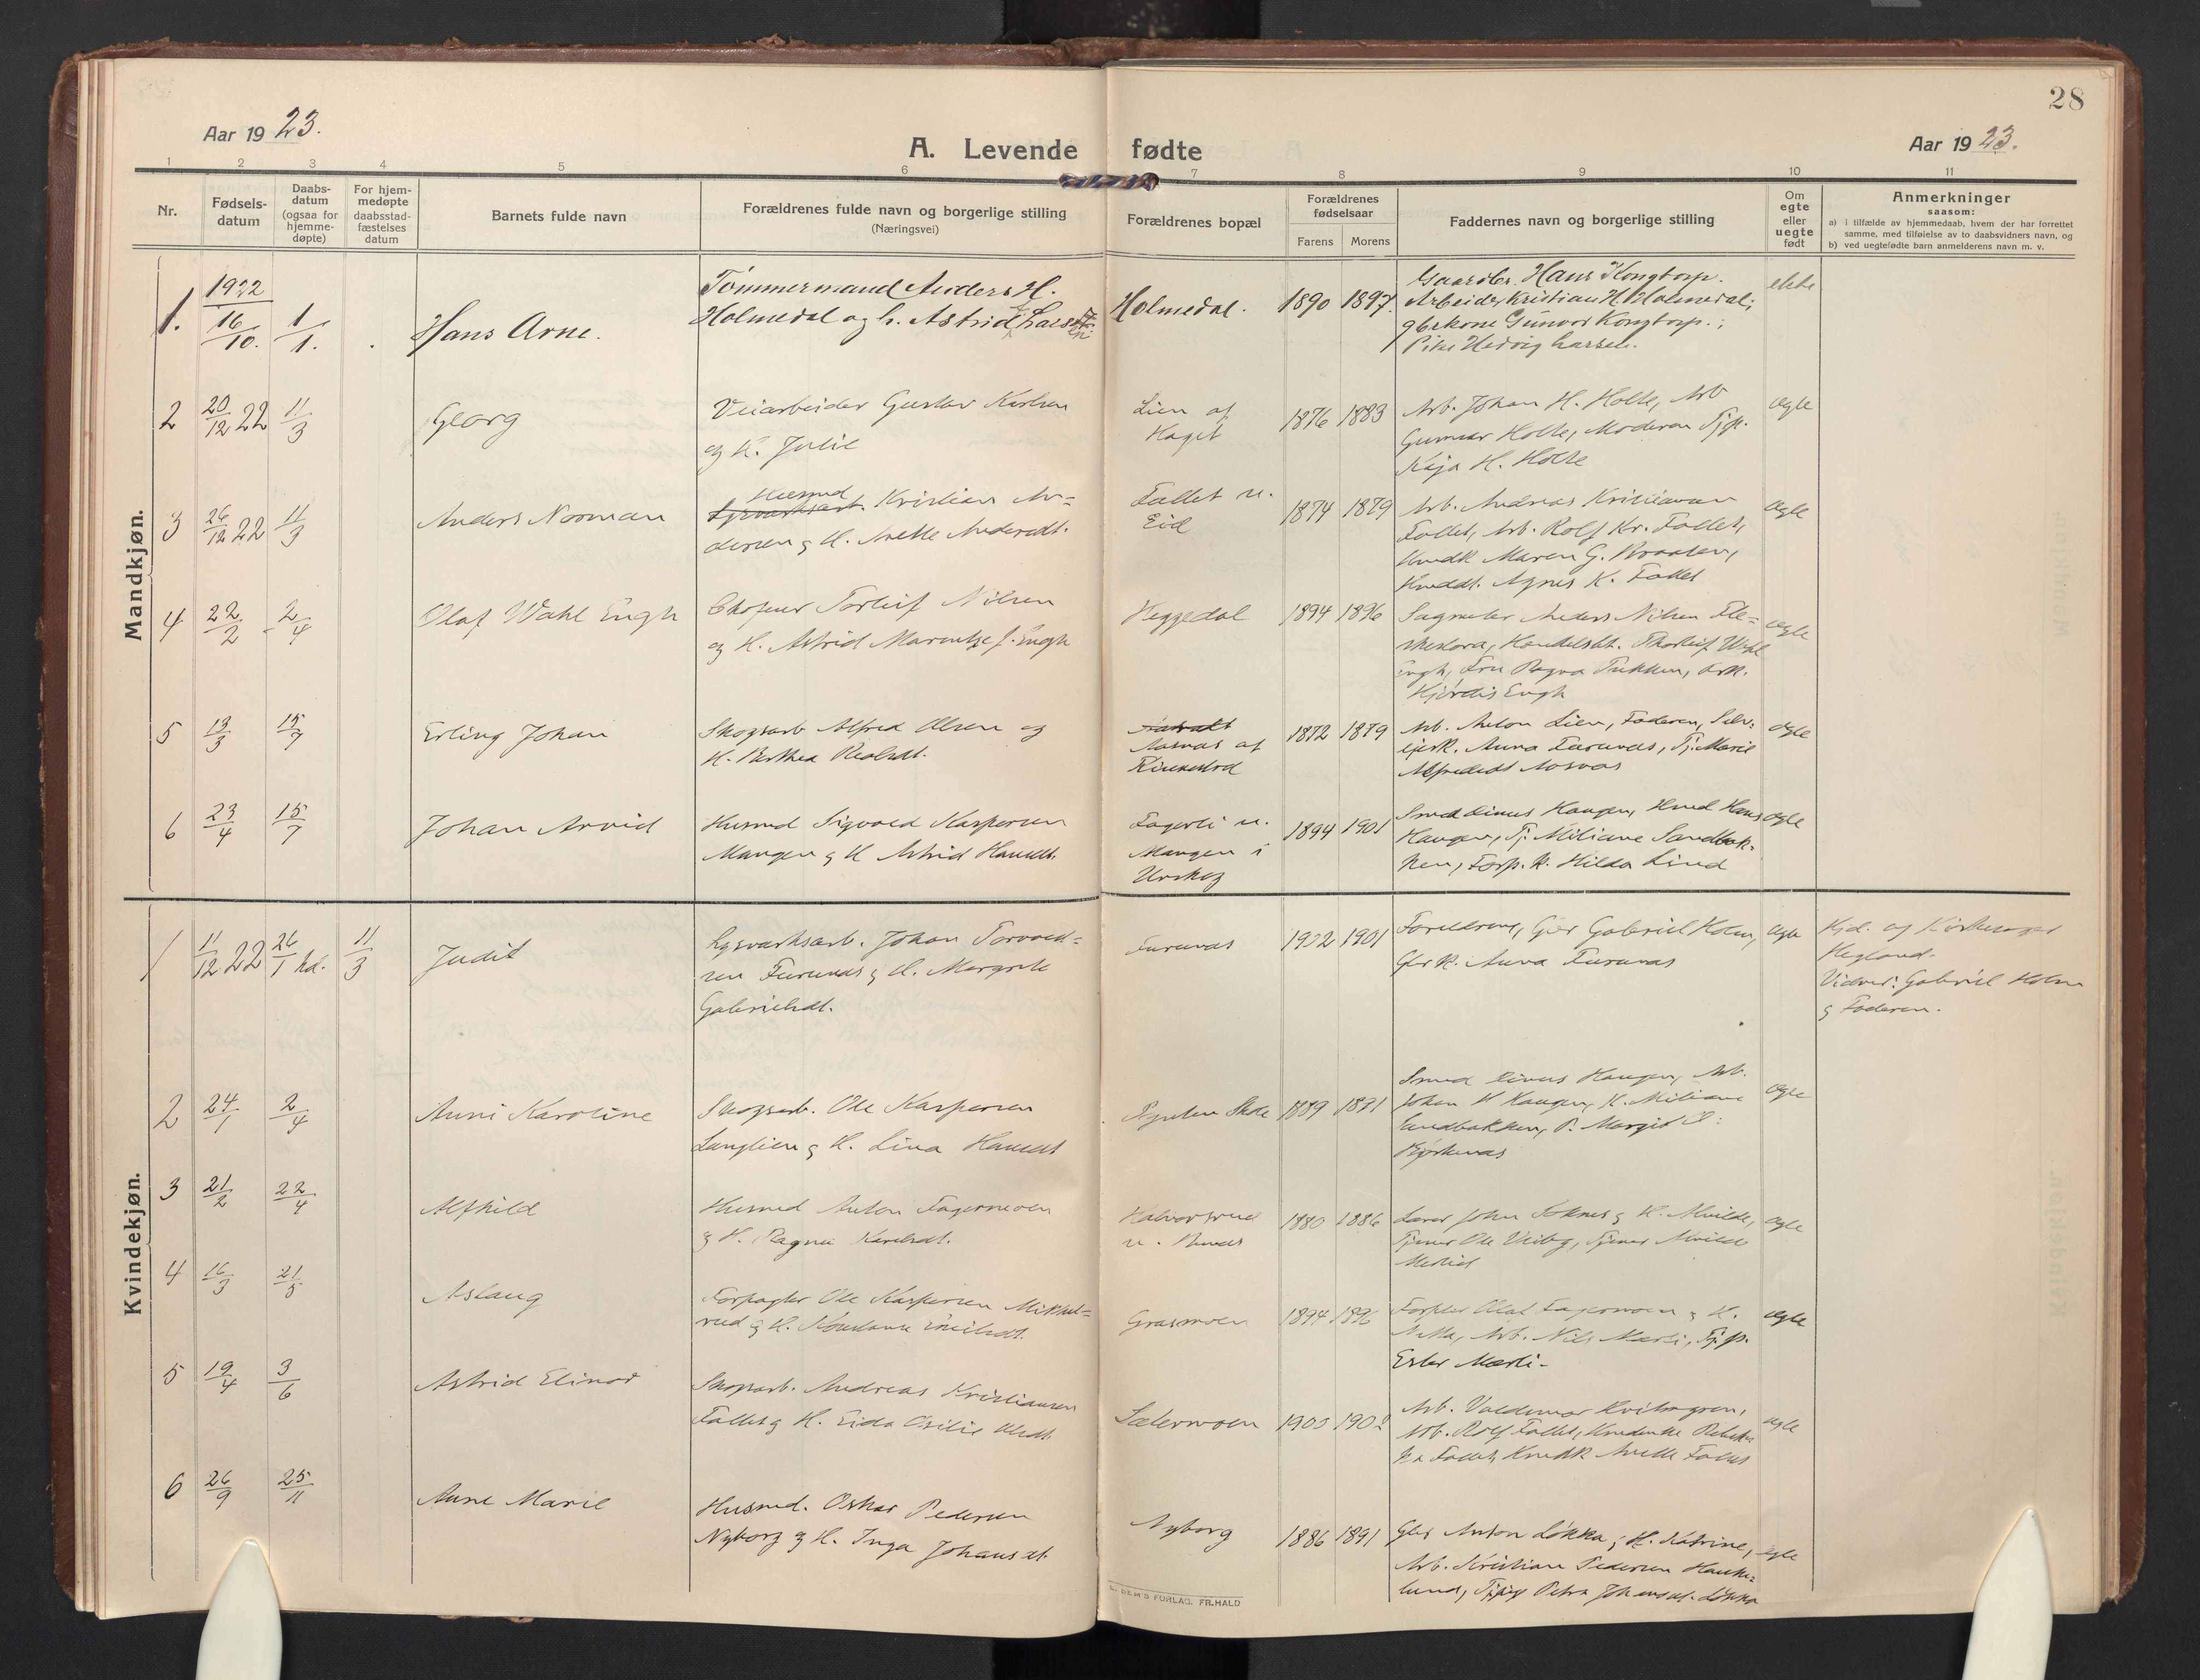 28
Aar 1923.
A. Levende fødte
Aar 1923.
1 2 3 4 5 6 7 8 9 10 11
Nr.
Fødsels-
datum
Daabs-
datum
(ogsaa for
hjemme-
døpte)
For hjem-
medøpte
daabsstad-
fæstelses
datum
Barnets fulde navn
Forældrenes fulde navn og borgerlige stilling
(Næringsvei)
Forældrenes bopæl
Forældrenes
fødselsaar
Farens Morens
Faddernes navn og borgerlige stilling
Om
egte
eller
uegte
født
Anmerkninger
saasom:
a) i tilfælde av hjemmedaab, hvem der har forrettet
samme, med tilføielse av to daabsvidners navn, og
b) ved uegtefødte barn anmelderens navn m. v.
Mandkjøn.
1. 1922 16/10. 1/1. Hans Arne.
Tømmermand Anders H.
Holmedal og h. Astrid Larsen
Holmedal. 1890 1897.
Gaardbr. Hans Kongtorp.
Arbeider Kristian H. Holmedal;
gbrkone Gunvor Kongtorp.;
Pike Hedvig Larsen.
ekte
2 20/12 22 11/3 Georg
Veiarbeider Gustav Karlsen
og H. Julie
Lien af
Haget
1876 1883
Arb. Johan H. Holte, Arb
Gunnar Holte, Moderen Tjp.
Kaja H. Holte
egte
3 26/12 22 11/3 Anders Norman
Husmd
Kristian An=
dersen g H. Anette Andersdt.
Fallet u.
Eid
1874 1879
Arb. Andreas Kristiansen
Fallet, Arb. Rolf Kr. Fallet,
Hmdk Maren G. Braaten,
Hmddt. Agnes K. Fallet
egte
4 22/2 2/4 Olaf Wahl Engh
Chofeur Torleif Nilsen
og H. Astrid Marentze f. Engh
Heggedal 1894 1896
Sagmeter Anders Nilsen Fle=
skestora, Handelsbt. Thorleif Wahl
Engh, Fru Ragna Tukken, Frk.
Hjørdis Engh
egte
5 13/3 15/7 Erling Johan
Skogsarb Alfred Olsen og
H. Berthea Reolsdt.
Aasnas af
Kinnestad
1872 1879
Arb. Anton Lien, Faderen, Selv=
ejerk. Anna Furunes, Tj. Marie
Alfredsdt Aasnas
egte
6 23/4 15/7 Johan Arvid
Husmd Sigvald Kaspersen
Mangen g H Astrid Hansdt.
Fagerli u.
Mangen i
Urskog
1894 1901
Smed Linus Haugen, Hmd Hans
Haugen, Tj. Miliane Sandbak=
ken, Forp. K. Hilda Lind
egte
Kvindekjøn.
1 11/12 22 26/1 hd. 11/3 Judit
Lysverksarb. Johan Torvald=
sen Furunes g H. Margrete
Gabrielsdt.
Furunes 1902 1901
Foreldrene, Gbr Gabriel Holm,
Gbr K. Anna Furunes
egte
Kjd. af Kirkesanger
Hegland.
Vidner: Gabriel Holm
g Faderen.
2 24/1 2/4 Anni Karoline
Skogsarb. Ole Kaspersen
Langlien g H. Lina Hansdt
Skole 1889 1891
Smed Linus Haugen, Arb.
Johan H Haugen, H. Miliane
Sandbakken, P. Margit O:
Bjørkenes
egte
3 21/2 22/4 Alfhild
Husmd Anton Fagermoen
g H. Ragna Karelsdt.
Halvorsrud
u.
1880 1886
Lærer John Foknes g H. Alvilde,
Tjener Ole Viberg, Tjener Alvilde
egte
4 16/3 21/5 Aslaug
Forpagter Ole Kaspersen Mikkels=
rud g H. Konstanse Emilsdt.
Grasmoen 1894 1896
Forpter Olaf Fagermoen g H.
Arb. Nils Mærli, Tj. p.
Ester Mærli-
egte
5 19/4 3/6 Astrid Elinor
Skogsarb. Andreas Kristiansen
Fallet g H. Eida Otilie Olsdt.
Sætermoen 1900 1902
Arb. Valdemar
Arb. Rolf Fallet,
Fallet, Hmdk Anette Fallet
egte
6 26/9 25/11 Anne Marie
Husmd. Oskar Pedersen
Nyborg g H. Inga Johansdt.
Nyborg 1886 1891
Gbr Anton Løkka; H. Katrine,
Arb. Kristian Pedersen Hauke=
lund, Tjpige Petra Johansdt. Løkka
egte
FORLAG. FR. HALD